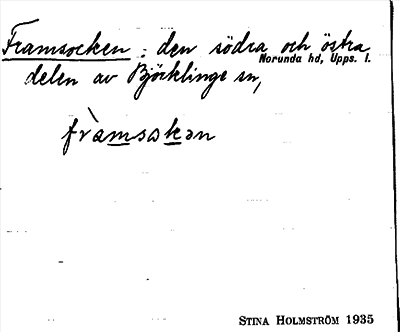 Framsocken : den södra och östra
Norunda hd, Upps. l.
delen av Björklinge sn,
fràmsokən
STINA HOLMSTRÖM 1935